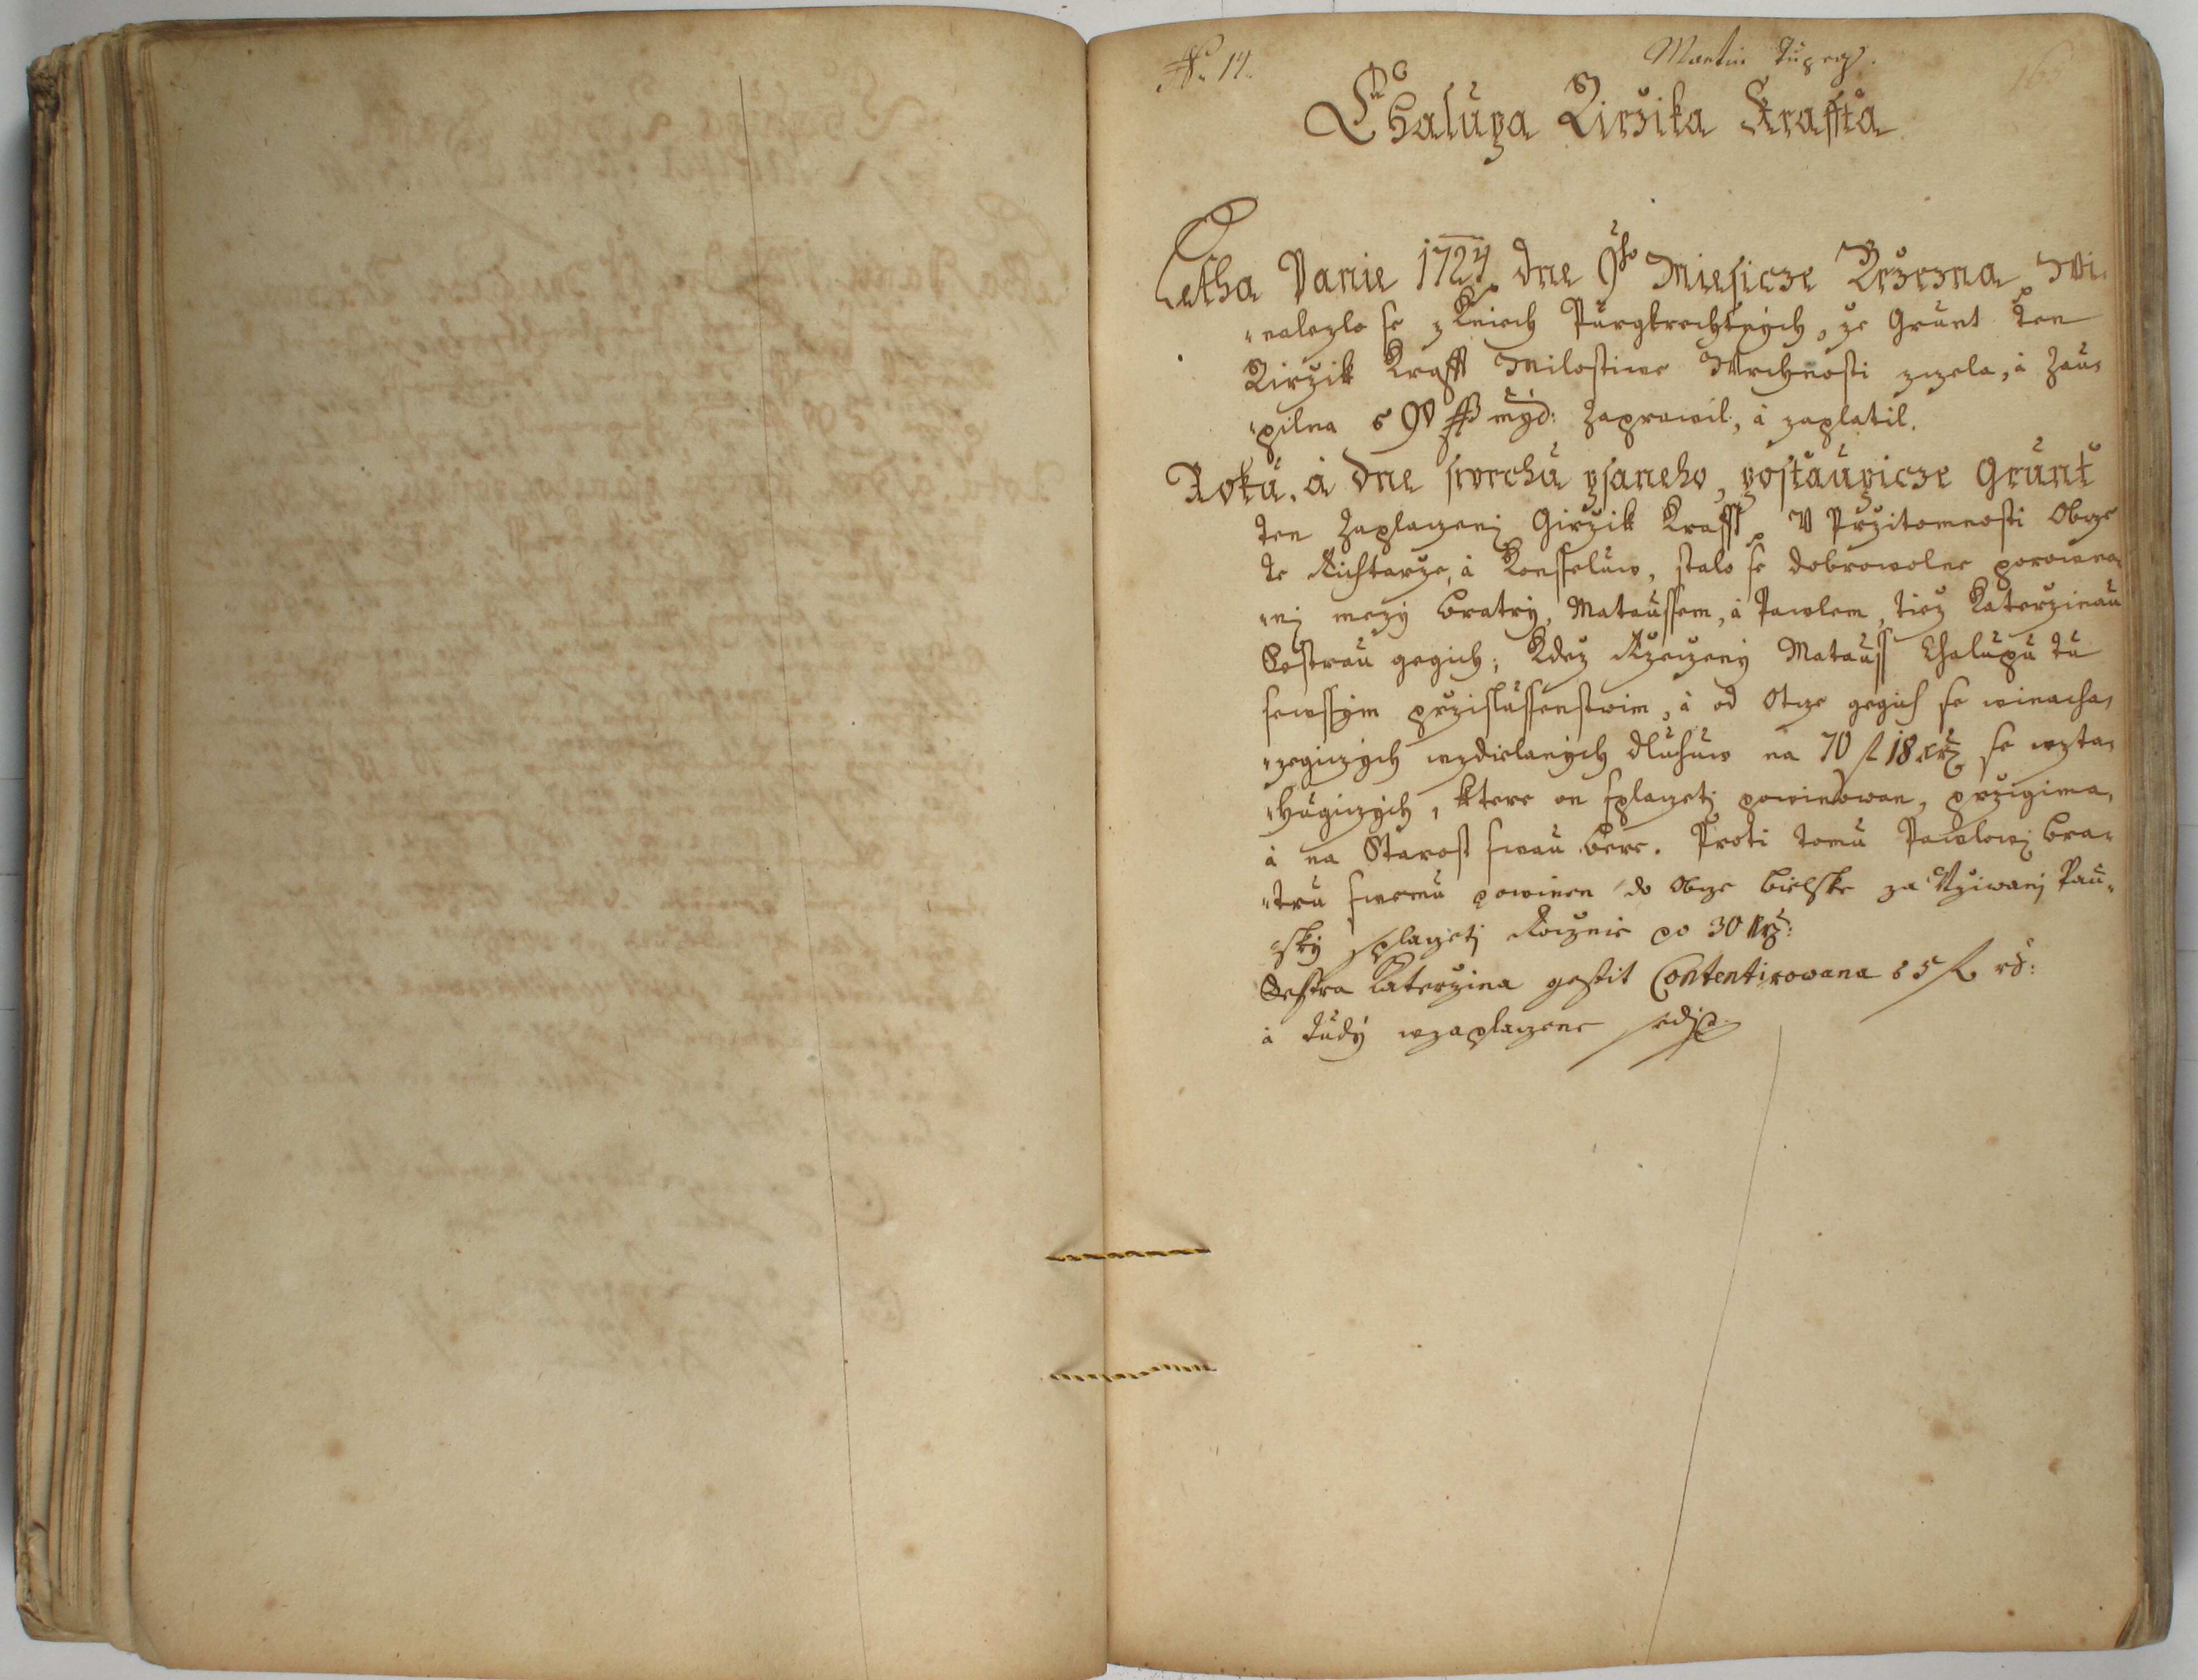 N. 14.
Martin Tupeg.
160
Chalupa Girzika Kraffta
Letha Panie 1724 dne 9ho Miesicze Brzezna, Wi-
nalezlo se z Knich Purgkrechtnych, ze Grunt ten
Girzik Krafft Milostiwe Wrchnosti zczela, a Zau-
pilna s 90 fl myd: zaprawil, a zaplatil.
Roku, a dne swrchu psaneho, postaupicze Grunt
ten zaplaczeny Girzik Krafft, V Przitomnosti Obcze
te Richtarze, a Konsseluw, stalo se dobrowolne porowna-
nj mezy bratry, Mataussem, a Pawlem, tiez Katerzinau
Sestrau gegich; Kdez Rzeczeny Matauss Chalupu tu
sewssym przislussenstwim, a od Otcze gegich se winacha-
zegiczych wzdielanych dluhuw na 70 fl 18 krz se wzta-
hugiczych, ktere on splaczetj powinowan, przigima,
a na Starost swau bere. Proti tomu Pawlowj bra-
tru swemu powinen do Obcze bielske za Vziwanj Pau-
sky splaczetj Rocznie po 30 krz:
Sestra Katerzina gestit Contentirowana s 5 fl rd:
a tudy wzaplaczene